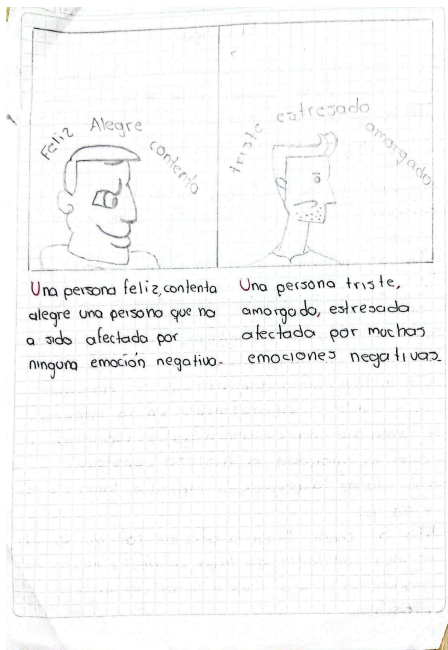 Feliz Alegre contenta
triste estresado amorgado
Una persona feliz, contenta
alegre una persona que na
a sido afectado por
ninguna emoción negativo.
Una persona triste,
amorgado, estresada
afectada por muchas
emociones negativas.